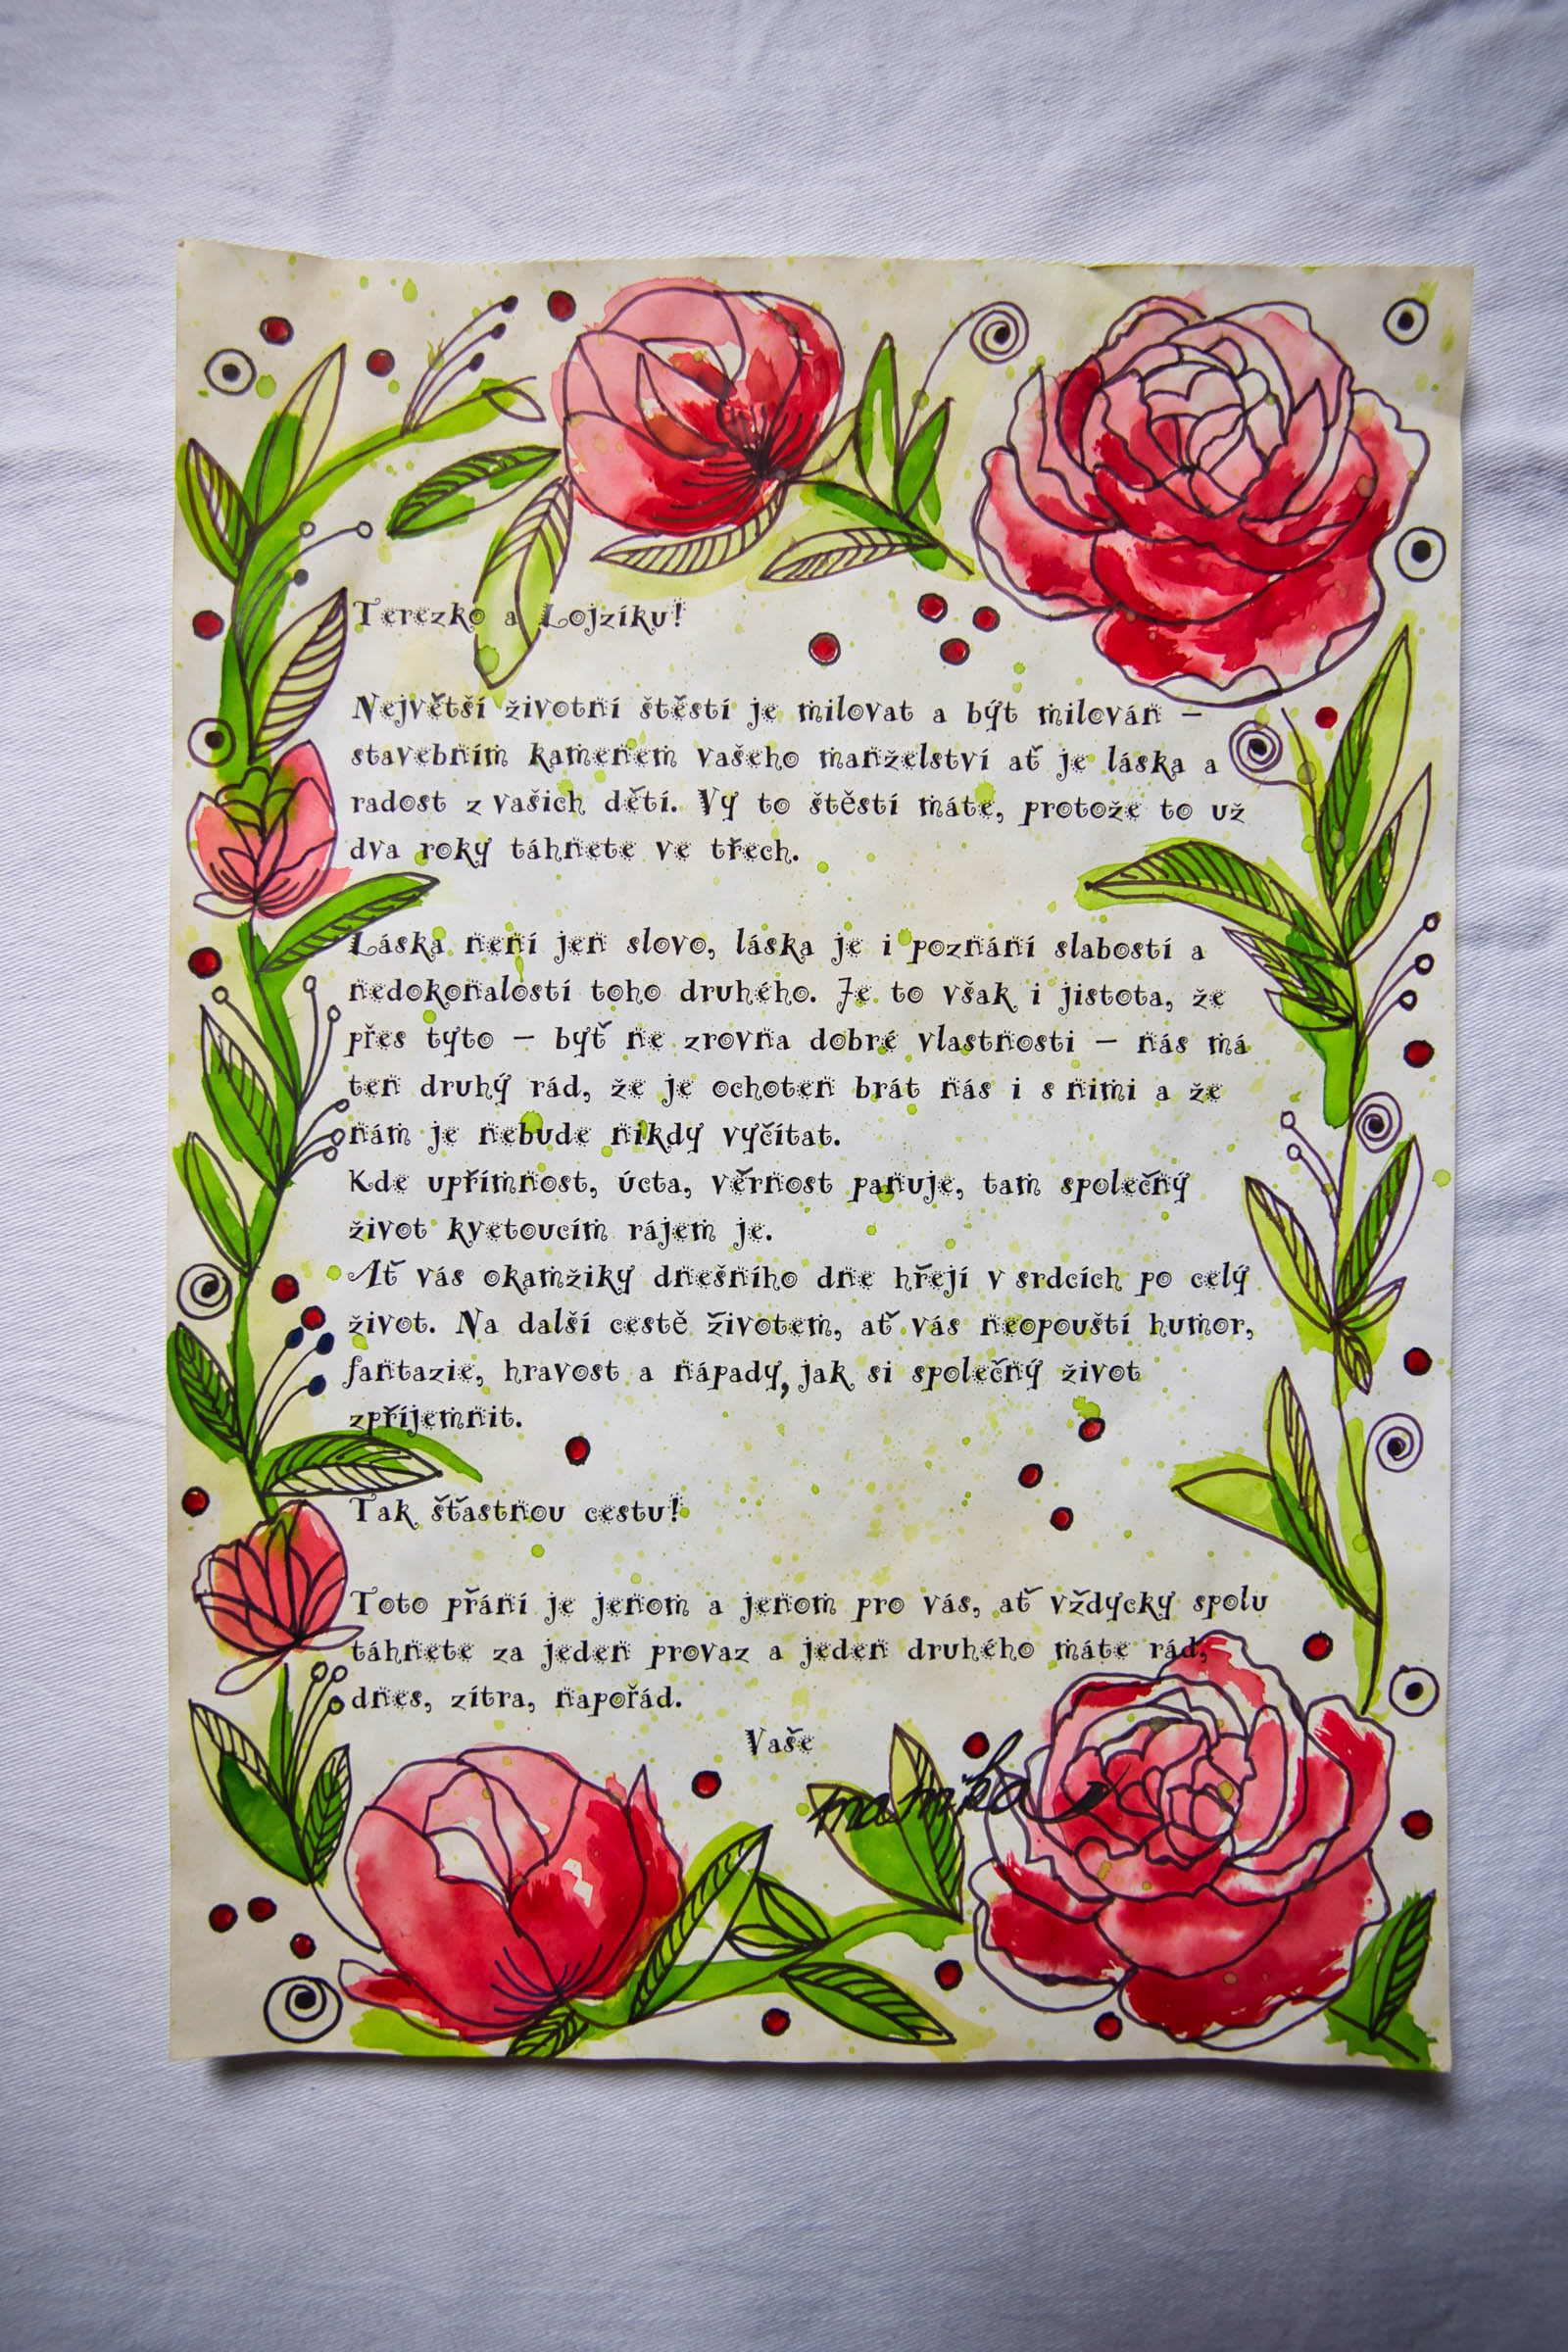 Terezko a Lojzíku!
Největší životní štěstí je milovat a být milován –
stavebním kamenem vašeho manželství ať je láska a
radost z vašich dětí. Vy to štěstí máte, protože to už
dva roky táhnete ve třech.
Láska není jen slovo, láska je i poznání slabostí a
nedokonalostí toho druhého. Je to však i jistota, že
přes tyto – byť ne zrovna dobré vlastnosti – nás má
ten druhý rád, že je ochoten brát nás i s nimi a že
nám je nebude nikdy vyčítat.
Kde upřímnost, úcta, věrnost panuje, tam společný
život kvetoucím rájem je.
Ať vás okamžiky dnešního dne hřejí v srdcích po celý
život. Na další cestě životem, ať vás neopouští humor,
fantazie, hravost a nápady, jak si společný život
zpříjemnit.
Tak šťastnou cestu!
Toto přání je jenom a jenom pro vás, ať vždycky spolu
táhnete za jeden provaz a jeden druhého máte rád,
dnes, zítra, napořád.
Vaše
mamika